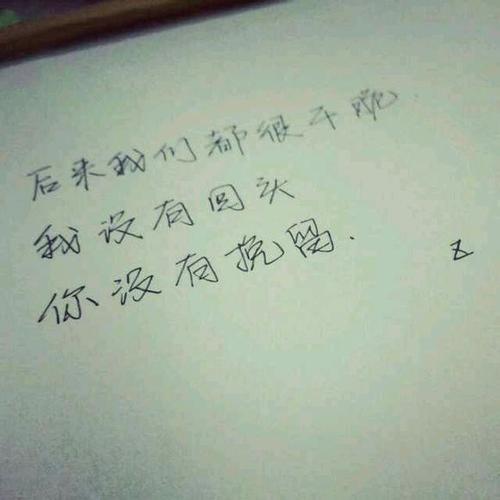 后来我们都很干脆.
我没有回头
你没有挽留.
Z